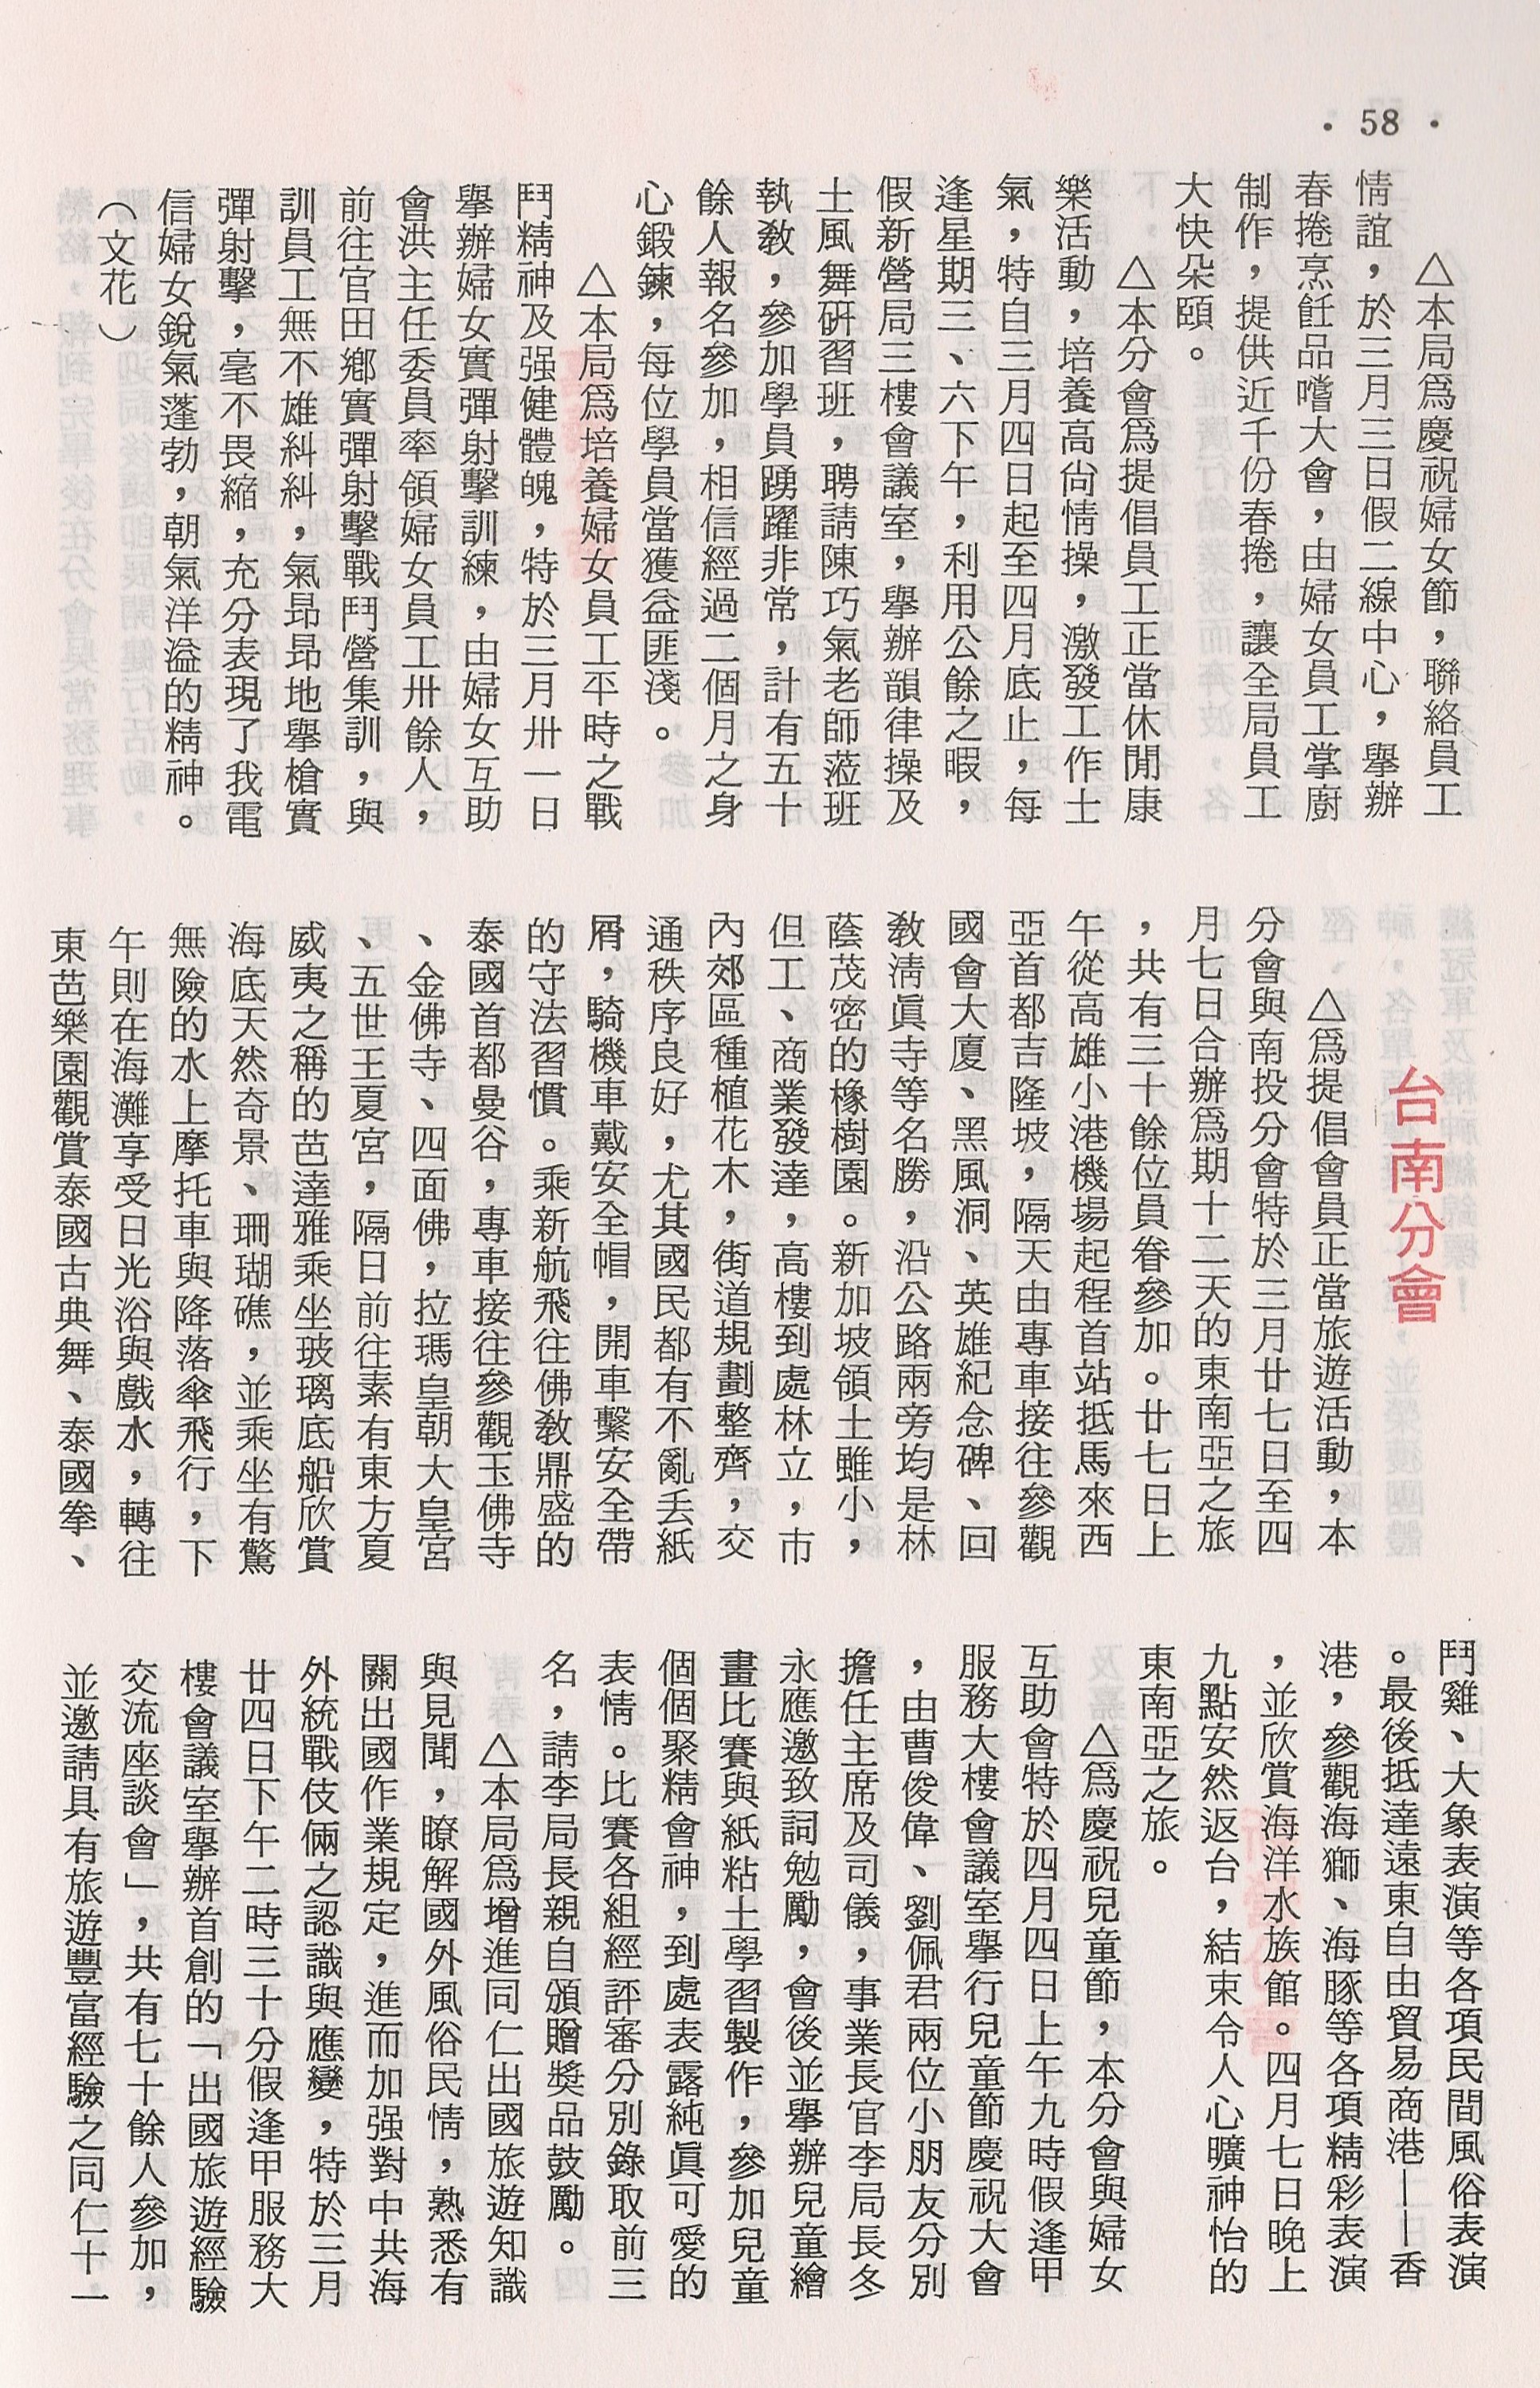 • 58 •
△本局爲慶祝婦女節，聯絡員工
情誼，於三月三日假二線中心，舉辦
春捲烹飪品嚐大會，由婦女員工掌廚
制作，提供近千份春捲，讓全局員工
大快朵頤。
△本分會爲提倡員工正當休閒康
樂活動，培養高尙情操，激發工作士
氣，特自三月四日起至四月底止，每
逢星期三、六下午，利用公餘之暇，
假新營局三樓會議室，舉辦韻律操及
土風舞硏習班，聘請陳巧氣老師蒞班
執敎，參加學員踴躍非常，計有五十
餘人報名參加，相信經過二個月之身
心鍛鍊，每位學員當獲益匪淺。
△本局爲培養婦女員工平時之戰
鬥精神及强健體魄，特於三月卅一日
舉辦婦女實彈射擊訓練，由婦女互助
會洪主任委員率領婦女員工卅餘人，
前往官田鄉實彈射擊戰鬥營集訓，與
訓員工無不雄糾糾，氣昂昂地擧槍實
彈射擊，毫不畏縮，充分表現了我電
信婦女銳氣蓬勃，朝氣洋溢的精神。
（文花）
台南分會
△爲提倡會員正當旅遊活動，本
分會與南投分會特於三月廿七日至四
月七日合辦爲期十二天的東南亞之旅
，共有三十餘位員眷參加。廿七日上
午從高雄小港機場起程首站抵馬來西
亞首都吉隆坡，隔天由專車接往參觀
國會大廈、黑風洞、英雄紀念碑、回
敎淸眞寺等名勝，沿公路兩旁均是林
蔭茂密的橡樹園。新加坡領土雖小，
但工、商業發達，高樓到處林立，市
內郊區種植花木，街道規劃整齊，交
通秩序良好，尤其國民都有不亂丢紙
屑，騎機車戴安全帽，開車繫安全帶
的守法習慣。乘新航飛往佛敎鼎盛的
泰國首都曼谷，專車接往參觀玉佛寺
、金佛寺、四面佛，拉瑪皇朝大皇宮
、五世王夏宮，隔日前往素有東方夏
威夷之稱的芭達雅乘坐玻璃底船欣賞
海底天然奇景、珊瑚礁，並乘坐有驚
無險的水上摩托車與降落傘飛行，下
午則在海灘享受日光浴與戲水，轉往
東芭樂園觀賞泰國古典舞、泰國拳、
鬥雞、大象表演等各項民間風俗表演
。最後抵達遠東自由貿易商港——香
港，參觀海獅、海豚等各項精彩表演
，並欣賞海洋水族館。四月七日晚上
九點安然返台，結束令人心曠神怡的
東南亞之旅。
△爲慶祝兒童節，本分會與婦女
互助會特於四月四日上午九時假逢甲
服務大樓會議室舉行兒童節慶祝大會
，由曹俊偉、劉佩君兩位小朋友分別
擔任主席及司儀，事業長官李局長冬
永應邀致詞勉勵，會後並舉辦兒童繪
畫比賽與紙粘土學習製作，參加兒童
個個聚精會神，到處表露純眞可愛的
表情。比賽各組經評審分別錄取前三
名，請李局長親自頒贈獎品鼓勵。
△本局爲增進同仁出國旅遊知識
與見聞，瞭解國外風俗民情，熟悉有
關出國作業規定，進而加强對中共海
外統戰伎倆之認識與應變，特於三月
廿四日下午二時三十分假逢甲服務大
樓會議室舉辦首創的「出國旅遊經驗
交流座談會」，共有七十餘人參加，
並邀請具有旅遊豐富經驗之同仁十一